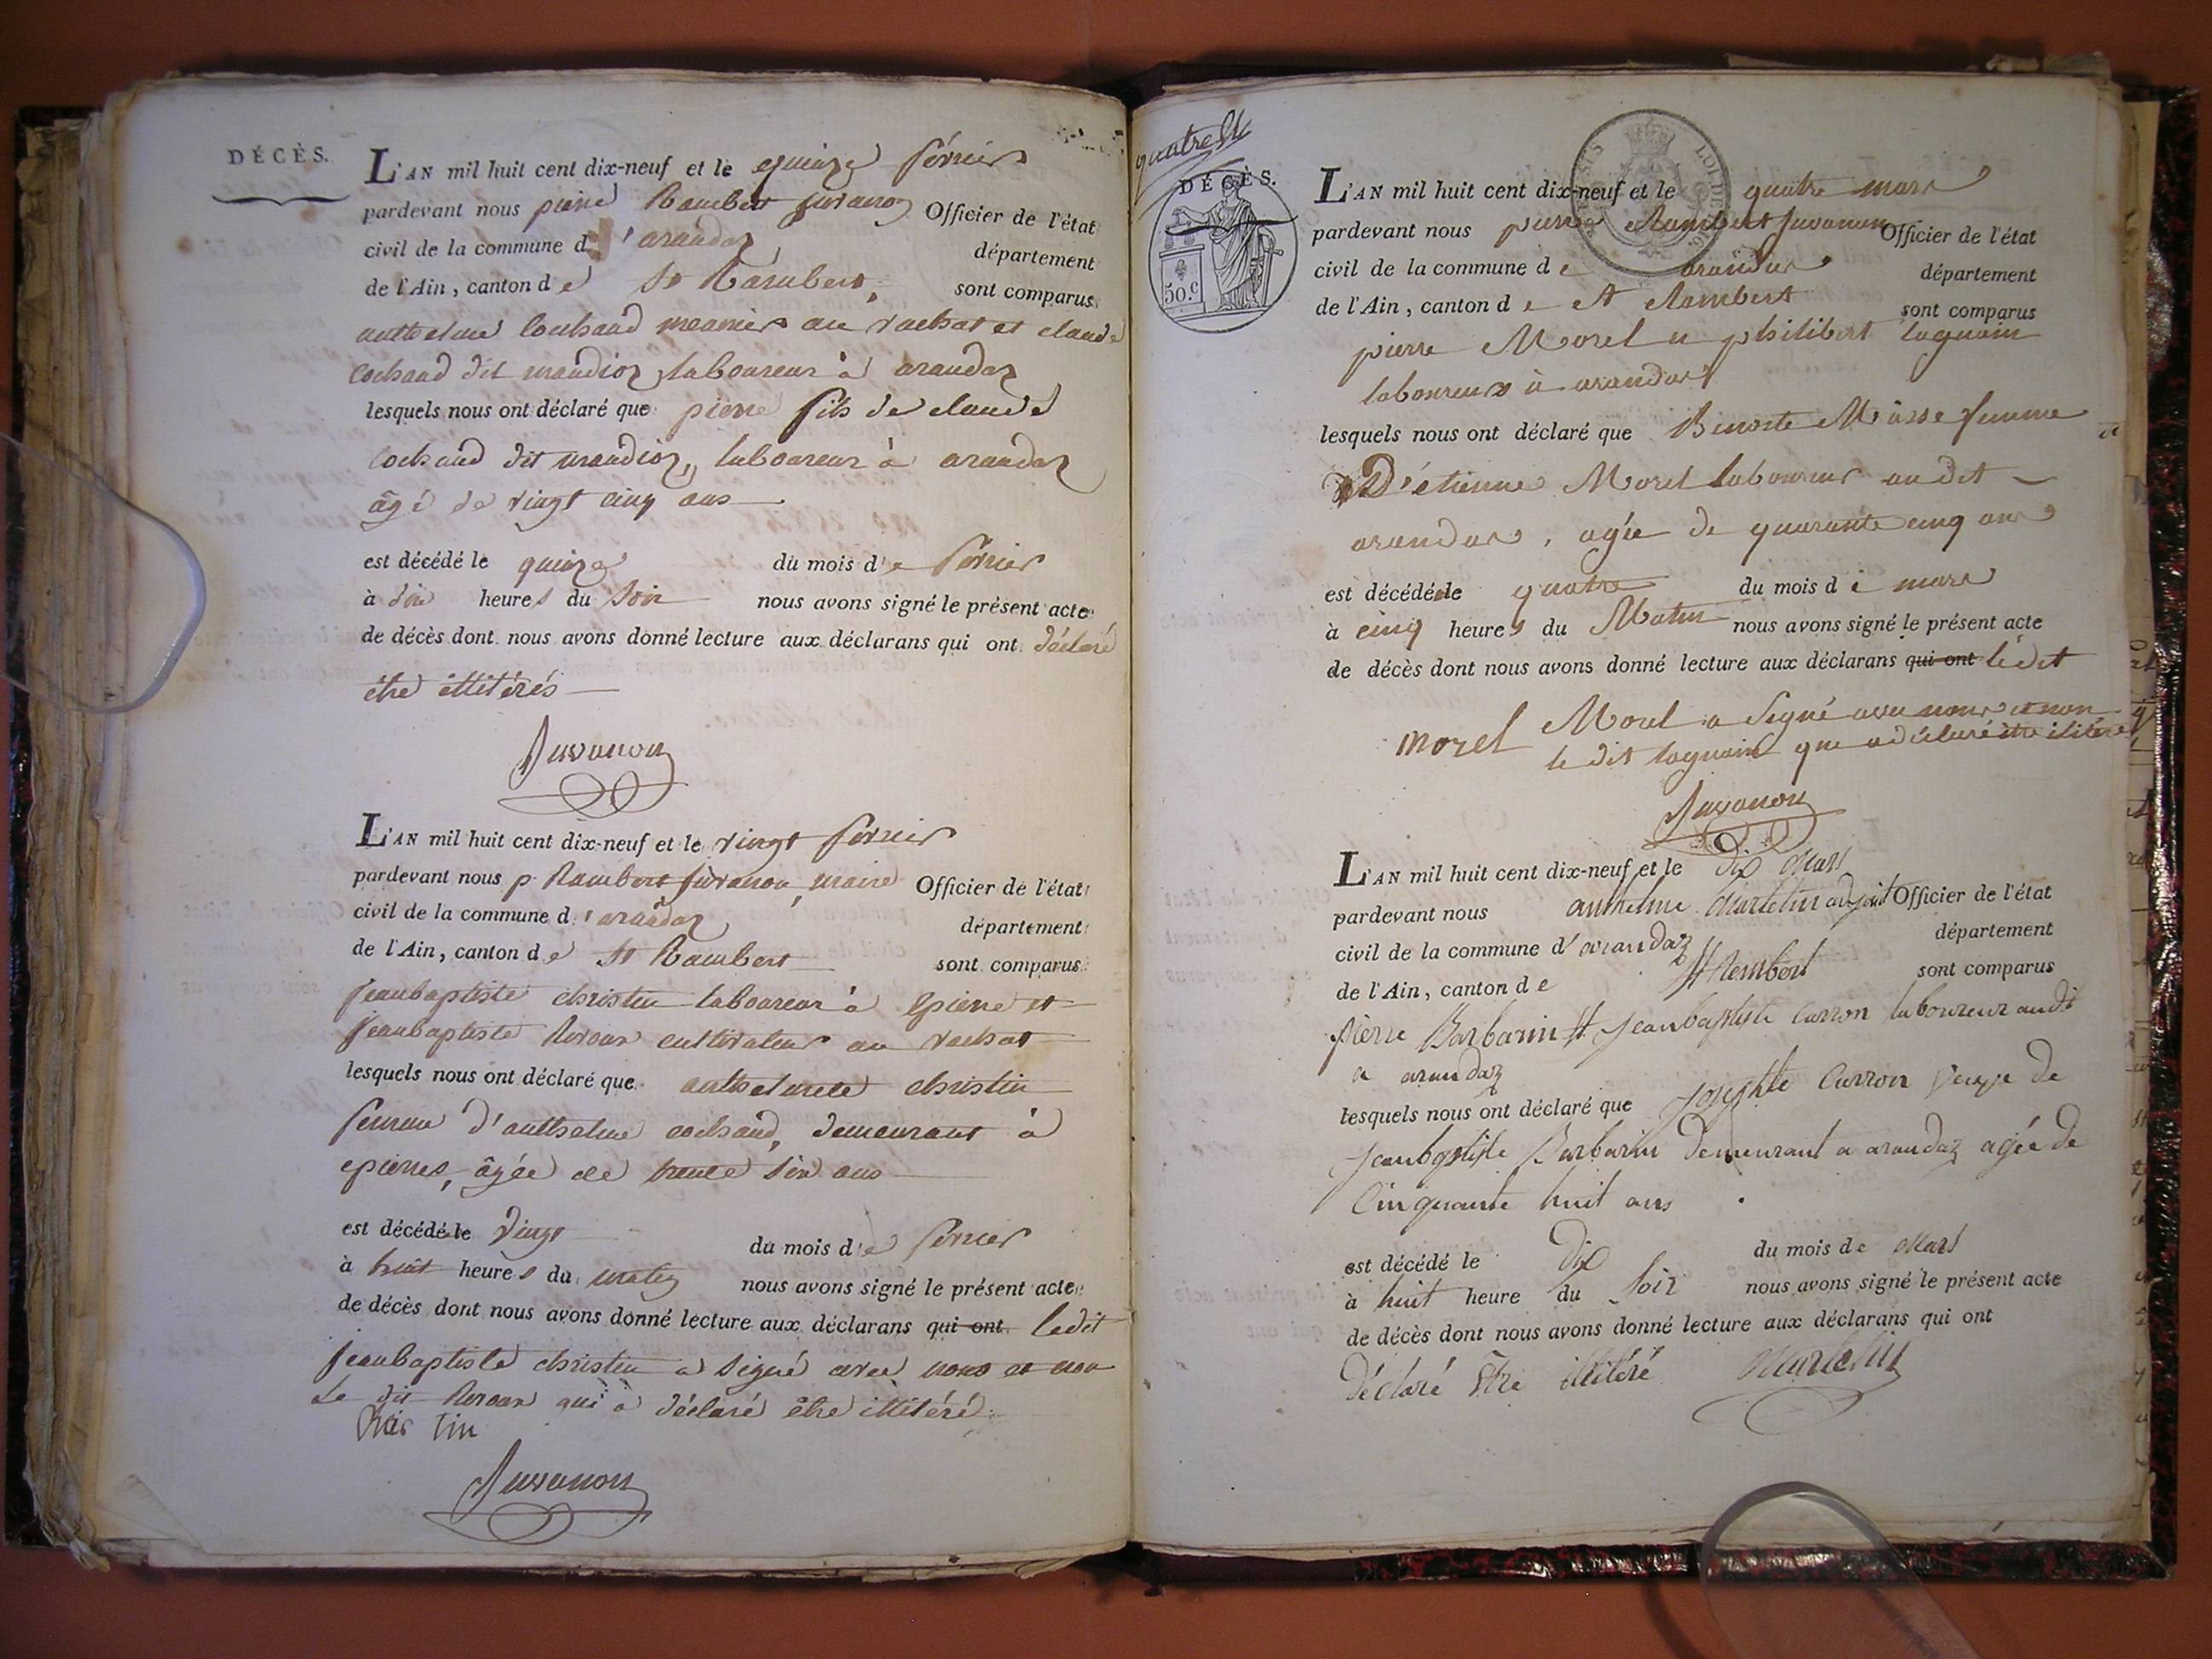 DÉCÈS.
L'AN mil huit cent dix-neuf et le quinze février
pardevant nous pierre Rambert juvanon Officier de l'état
civil de la commune d'arandaz département
de l'Ain, canton de St Rambert, sont comparus
anthelme cochaud meunier au vachat et claude
cochaud dit mandioz, laboureur à arandaz
lesquels nous ont déclaré que pierre fils de claude
cochaud dit mandioz, laboureur à arandaz
âgé de vingt cinq ans
est décédé le quinze du mois de février
à dix heures du soir nous avons signé le présent acte
de décès dont nous avons donné lecture aux déclarans qui ont déclaré
être illitérés
Juvanon
L'AN mil huit cent dix-neuf et le vingt février
pardevant nous p. Rambert juvanon, maire Officier de l'état
civil de la commune d'arandaz département
de l'Ain, canton de St Rambert sont comparus
jeanbaptiste christin laboureur à epierre et
jeanbaptiste cultivateur au vachat
lesquels nous ont déclaré que anthelmete christin
femme d'anthelme cochaud, demeurant à
epierres, âgée de trente six ans
est décédée le vingt du mois de février
à huit heures du matin nous avons signé le présent acte
de décès dont nous avons donné lecture aux déclarans qui ont ledit
jeanbaptiste christin a signé avec nous et non
le dit qui a déclaré être illitéré
Chris tin
Juvanon
quatre
DÉCÈS.
50.c
L'AN mil huit cent dix-neuf et le quatre mars
pardevant nous pierre Rambert Juvanon Officier de l'état
civil de la commune de arandas département
de l'Ain, canton de St Rambert sont comparus
pierre Morel et philibert loguain
laboureurs à arandas
lesquels nous ont déclaré que Benoite Masse femme
D'étienne Morel laboureur au dit
arandas, agée de quarante cinq ans
est décédée le quatre du mois de mars
à cinq heures du Matin nous avons signé le présent acte
de décès dont nous avons donné lecture aux déclarans qui ont ledit
Morel a signé avec nous et non
morel le dit loguain que a déclaré être ilitéré
Juvanon
L'AN mil huit cent dix-neuf et le dix Mars
pardevant nous anthelme Martelin adjoint Officier de l'état
civil de la commune d'arandaz département
de l'Ain, canton de St Rembert sont comparus
pierre Barbarin et jeanbaptiste Carron laboureur audit
a arandaz
lesquels nous ont déclaré que josephte Carron veuve de
jeanbaptiste Barbarin demeurant a arandaz agée de
Cinquante huit ans
est décédé le dix du mois de Mars
à huit heure du soir nous avons signé le présent acte
de décès dont nous avons donné lecture aux déclarans qui ont
déclaré être illitéré Martelin